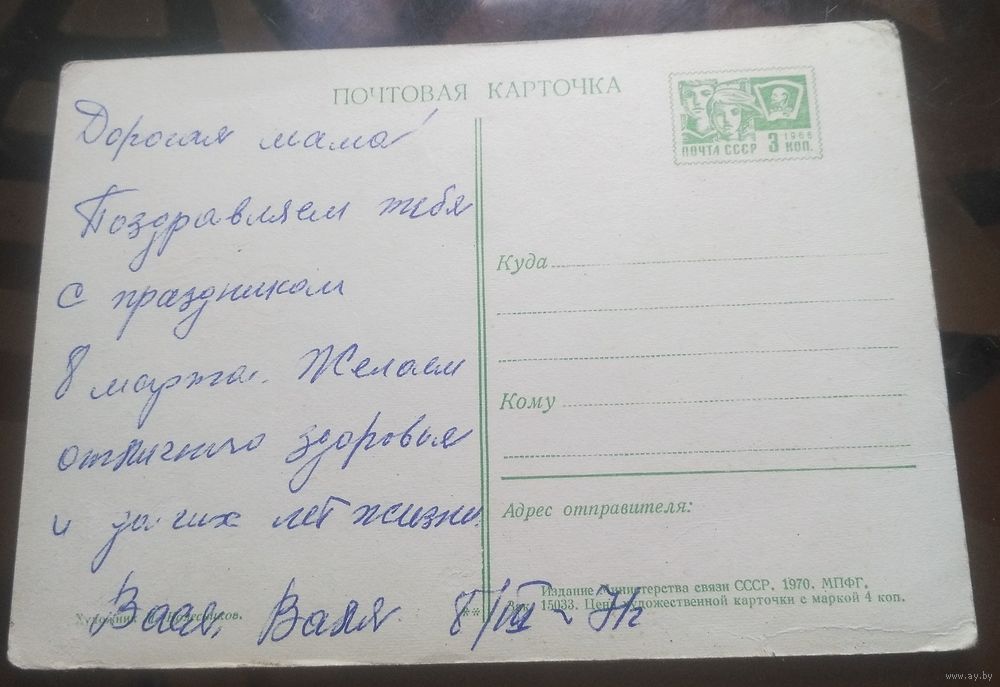 ПОЧТОВАЯ КАРТОЧКА
ПОЧТА СССР 3 КОП. 1966
Дорогая мама!
Поздравляем тебя
с праздником
8 марта. Желаем
отличного здоровья
и лет жизни
Валя 8/III
Куда
Кому
Адрес отправителя:
Издание Министерства связи СССР. 1970. МПФГ.
Зак. 15033. Цена художественной карточки с маркой 4 коп.
Художник
**
www.ay.by